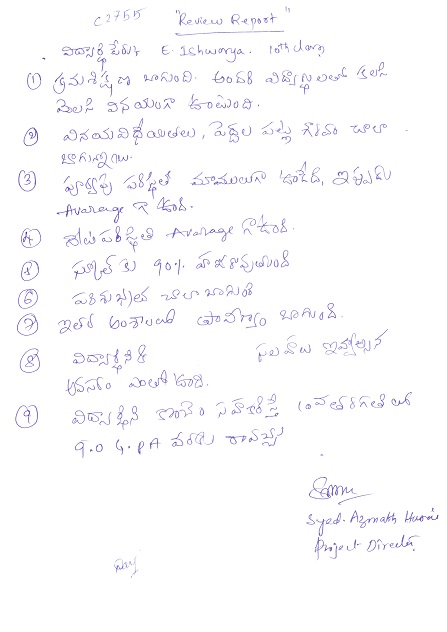 C27515
"Review Report"
విద్యార్థి పేరు: E. Ishwarya. 10th class
① క్రమశిక్షణ బాగుంది. అందరి విద్యార్థులతో కలసి
మెలసి వినయంగా ఉంటుంది.
② వినయవిధేయతలు, పెద్దల పట్ల గౌరవం చాలా
బాగున్నాయి.
③ పూర్వపు పరిస్థితి మామూలుగా ఉండేది, ఇప్పుడు
Avarage గా ఉంది.
④ శారీరక పరిస్థితి Avarage గా ఉంది.
⑤ స్కూల్ కు 90% హాజరవుతుంది
⑥ పరిశుభ్రత చాలా బాగుంది
⑦ ఇతర అంశాలలో ప్రావీణ్యం బాగుంది.
⑧ విద్యార్థినికి సలహాలు ఇవ్వాల్సిన
అవసరం ఎంతో ఉంది.
⑨ విద్యార్థినికి కొంచెం సహకరిస్తే 10వతరగతి లో
9.0 G.PA వరకు రావచ్చు
Syed. Azmath Husain
Project Director